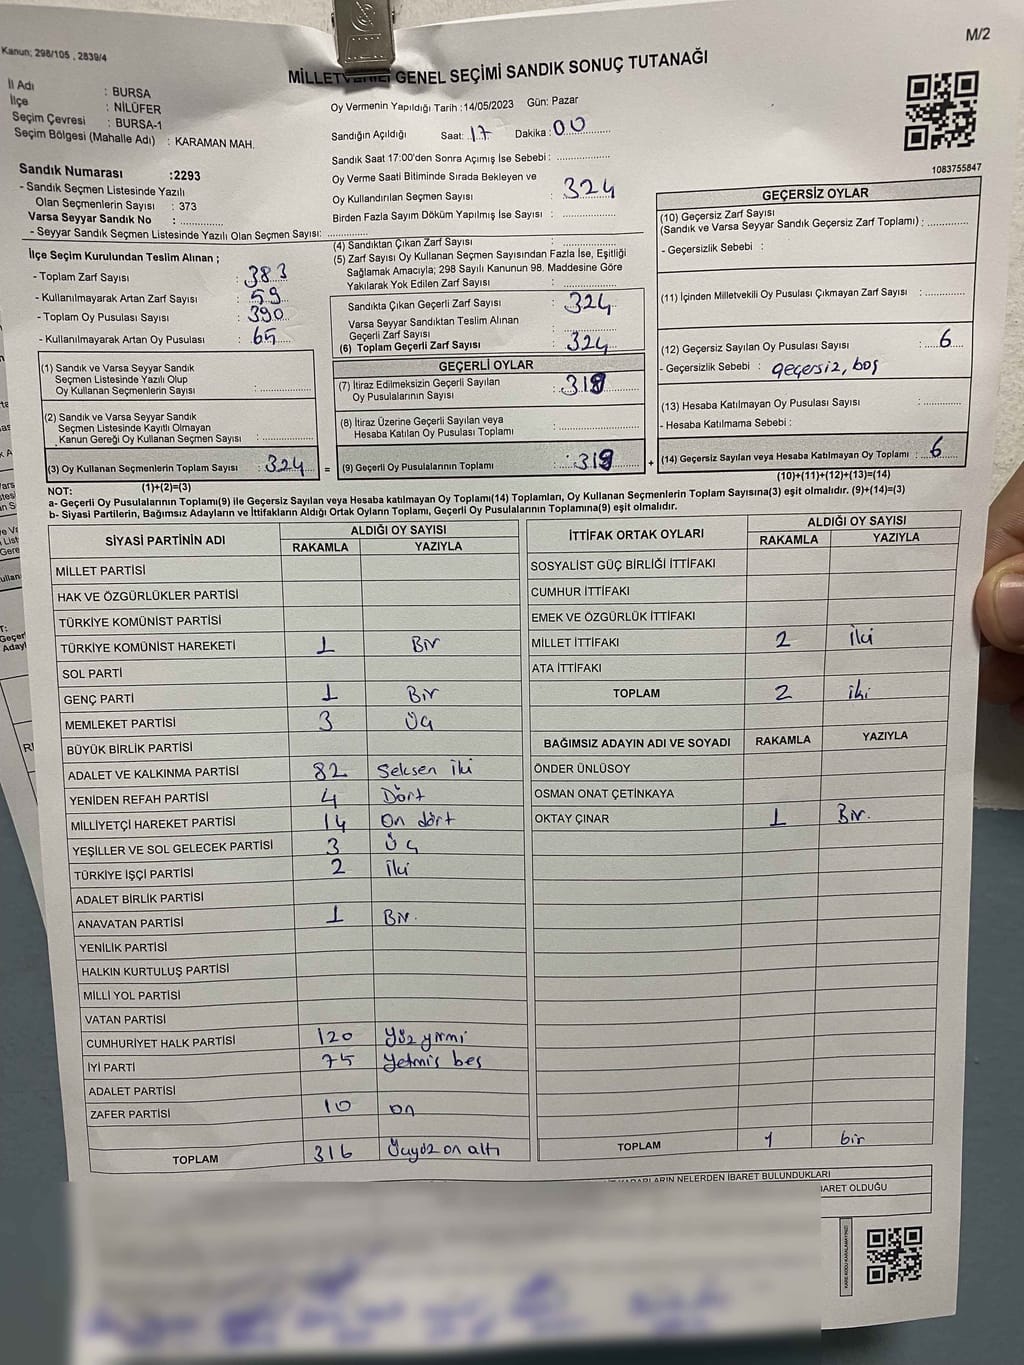 Kanun; 298/105 , 2839/4
M/2
GENEL SEÇİMİ SANDIK SONUÇ TUTANAĞI
İl Adı : BURSA
İlçe : NİLÜFER
Seçim Çevresi : BURSA-1
Seçim Bölgesi (Mahalle Adı) : KARAMAN MAH.
Oy Vermenin Yapıldığı Tarih :14/05/2023 Gün: Pazar
Sandığın Açıldığı Saat: 17 Dakika: 00
Sandık Saat 17:00'den Sonra Açımış İse Sebebi :
Oy Verme Saati Bitiminde Sırada Bekleyen ve
Oy Kullandırılan Seçmen Sayısı : 324
Birden Fazla Sayım Döküm Yapılmış İse Sayısı :
1083755847
Sandık Numarası :2293
- Sandık Seçmen Listesinde Yazılı
Olan Seçmenlerin Sayısı : 373
Varsa Seyyar Sandık No :
- Seyyar Sandık Seçmen Listesinde Yazılı Olan Seçmen Sayısı:
İlçe Seçim Kurulundan Teslim Alınan ;
- Toplam Zarf Sayısı : 383
- Kullanılmayarak Artan Zarf Sayısı : 59
- Toplam Oy Pusulası Sayısı : 390
- Kullanılmayarak Artan Oy Pusulası : 65
(1) Sandık ve Varsa Seyyar Sandık
Seçmen Listesinde Yazılı Olup
Oy Kullanan Seçmenlerin Sayısı :
(2) Sandık ve Varsa Seyyar Sandık
Seçmen Listesinde Kayıtlı Olmayan
Kanun Gereği Oy Kullanan Seçmen Sayısı :
(3) Oy Kullanan Seçmenlerin Toplam Sayısı : 324
(1)+(2)=(3)
(4) Sandıktan Çıkan Zarf Sayısı :
(5) Zarf Sayısı Oy Kullanan Seçmen Sayısından Fazla İse, Eşitliği
Sağlamak Amacıyla; 298 Sayılı Kanunun 98. Maddesine Göre
Yakılarak Yok Edilen Zarf Sayısı :
Sandıkta Çıkan Geçerli Zarf Sayısı : 324
Varsa Seyyar Sandıktan Teslim Alınan
Geçerli Zarf Sayısı :
(6) Toplam Geçerli Zarf Sayısı : 324
GEÇERLİ OYLAR
(7) İtiraz Edilmeksizin Geçerli Sayılan
Oy Pusulalarının Sayısı : 318
(8) İtiraz Üzerine Geçerli Sayılan veya
Hesaba Katılan Oy Pusulası Toplamı :
= (9) Geçerli Oy Pusulalarının Toplamı : 318 +
GEÇERSİZ OYLAR
(10) Geçersiz Zarf Sayısı
(Sandık ve Varsa Seyyar Sandık Geçersiz Zarf Toplamı) :
- Geçersizlik Sebebi :
(11) İçinden Milletvekili Oy Pusulası Çıkmayan Zarf Sayısı :
(12) Geçersiz Sayılan Oy Pusulası Sayısı : 6
- Geçersizlik Sebebi : geçersiz, boş
(13) Hesaba Katılmayan Oy Pusulası Sayısı :
- Hesaba Katılmama Sebebi :
(14) Geçersiz Sayılan veya Hesaba Katılmayan Oy Toplamı : 6
(10)+(11)+(12)+(13)=(14)
NOT:
a- Geçerli Oy Pusulalarının Toplamı(9) ile Geçersiz Sayılan veya Hesaba katılmayan Oy Toplamı(14) Toplamları, Oy Kullanan Seçmenlerin Toplam Sayısına(3) eşit olmalıdır. (9)+(14)=(3)
b- Siyasi Partilerin, Bağımsız Adayların ve İttifakların Aldığı Ortak Oyların Toplamı, Geçerli Oy Pusulalarının Toplamına(9) eşit olmalıdır.
SİYASİ PARTİNİN ADI ALDIĞI OY SAYISI
RAKAMLA YAZIYLA
MİLLET PARTİSİ
HAK VE ÖZGÜRLÜKLER PARTİSİ
TÜRKİYE KOMÜNİST PARTİSİ
TÜRKİYE KOMÜNİST HAREKETİ 1 Bir
SOL PARTİ
GENÇ PARTİ 1 Bir
MEMLEKET PARTİSİ 3 Üç
BÜYÜK BİRLİK PARTİSİ
ADALET VE KALKINMA PARTİSİ 82 Seksen iki
YENİDEN REFAH PARTİSİ 4 Dört
MİLLİYETÇİ HAREKET PARTİSİ 14 On dört
YEŞİLLER VE SOL GELECEK PARTİSİ 3 Üç
TÜRKİYE İŞÇİ PARTİSİ 2 İki
ADALET BİRLİK PARTİSİ
ANAVATAN PARTİSİ 1 Bir.
YENİLİK PARTİSİ
HALKIN KURTULUŞ PARTİSİ
MİLLİ YOL PARTİSİ
VATAN PARTİSİ
CUMHURİYET HALK PARTİSİ 120 Yüz yirmi
İYİ PARTİ 75 Yetmiş beş
ADALET PARTİSİ
ZAFER PARTİSİ 10 on
TOPLAM 316 Üçyüz on altı
İTTİFAK ORTAK OYLARI ALDIĞI OY SAYISI
RAKAMLA YAZIYLA
SOSYALİST GÜÇ BİRLİĞİ İTTİFAKI
CUMHUR İTTİFAKI
EMEK VE ÖZGÜRLÜK İTTİFAKI
MİLLET İTTİFAKI 2 İki
ATA İTTİFAKI
TOPLAM 2 iki
BAĞIMSIZ ADAYIN ADI VE SOYADI RAKAMLA YAZIYLA
ÖNDER ÜNLÜSOY
OSMAN ONAT ÇETİNKAYA
OKTAY ÇINAR 1 Bir.
TOPLAM 1 bir
NELERDEN İBARET BULUNDUKLARI
OLDUĞU